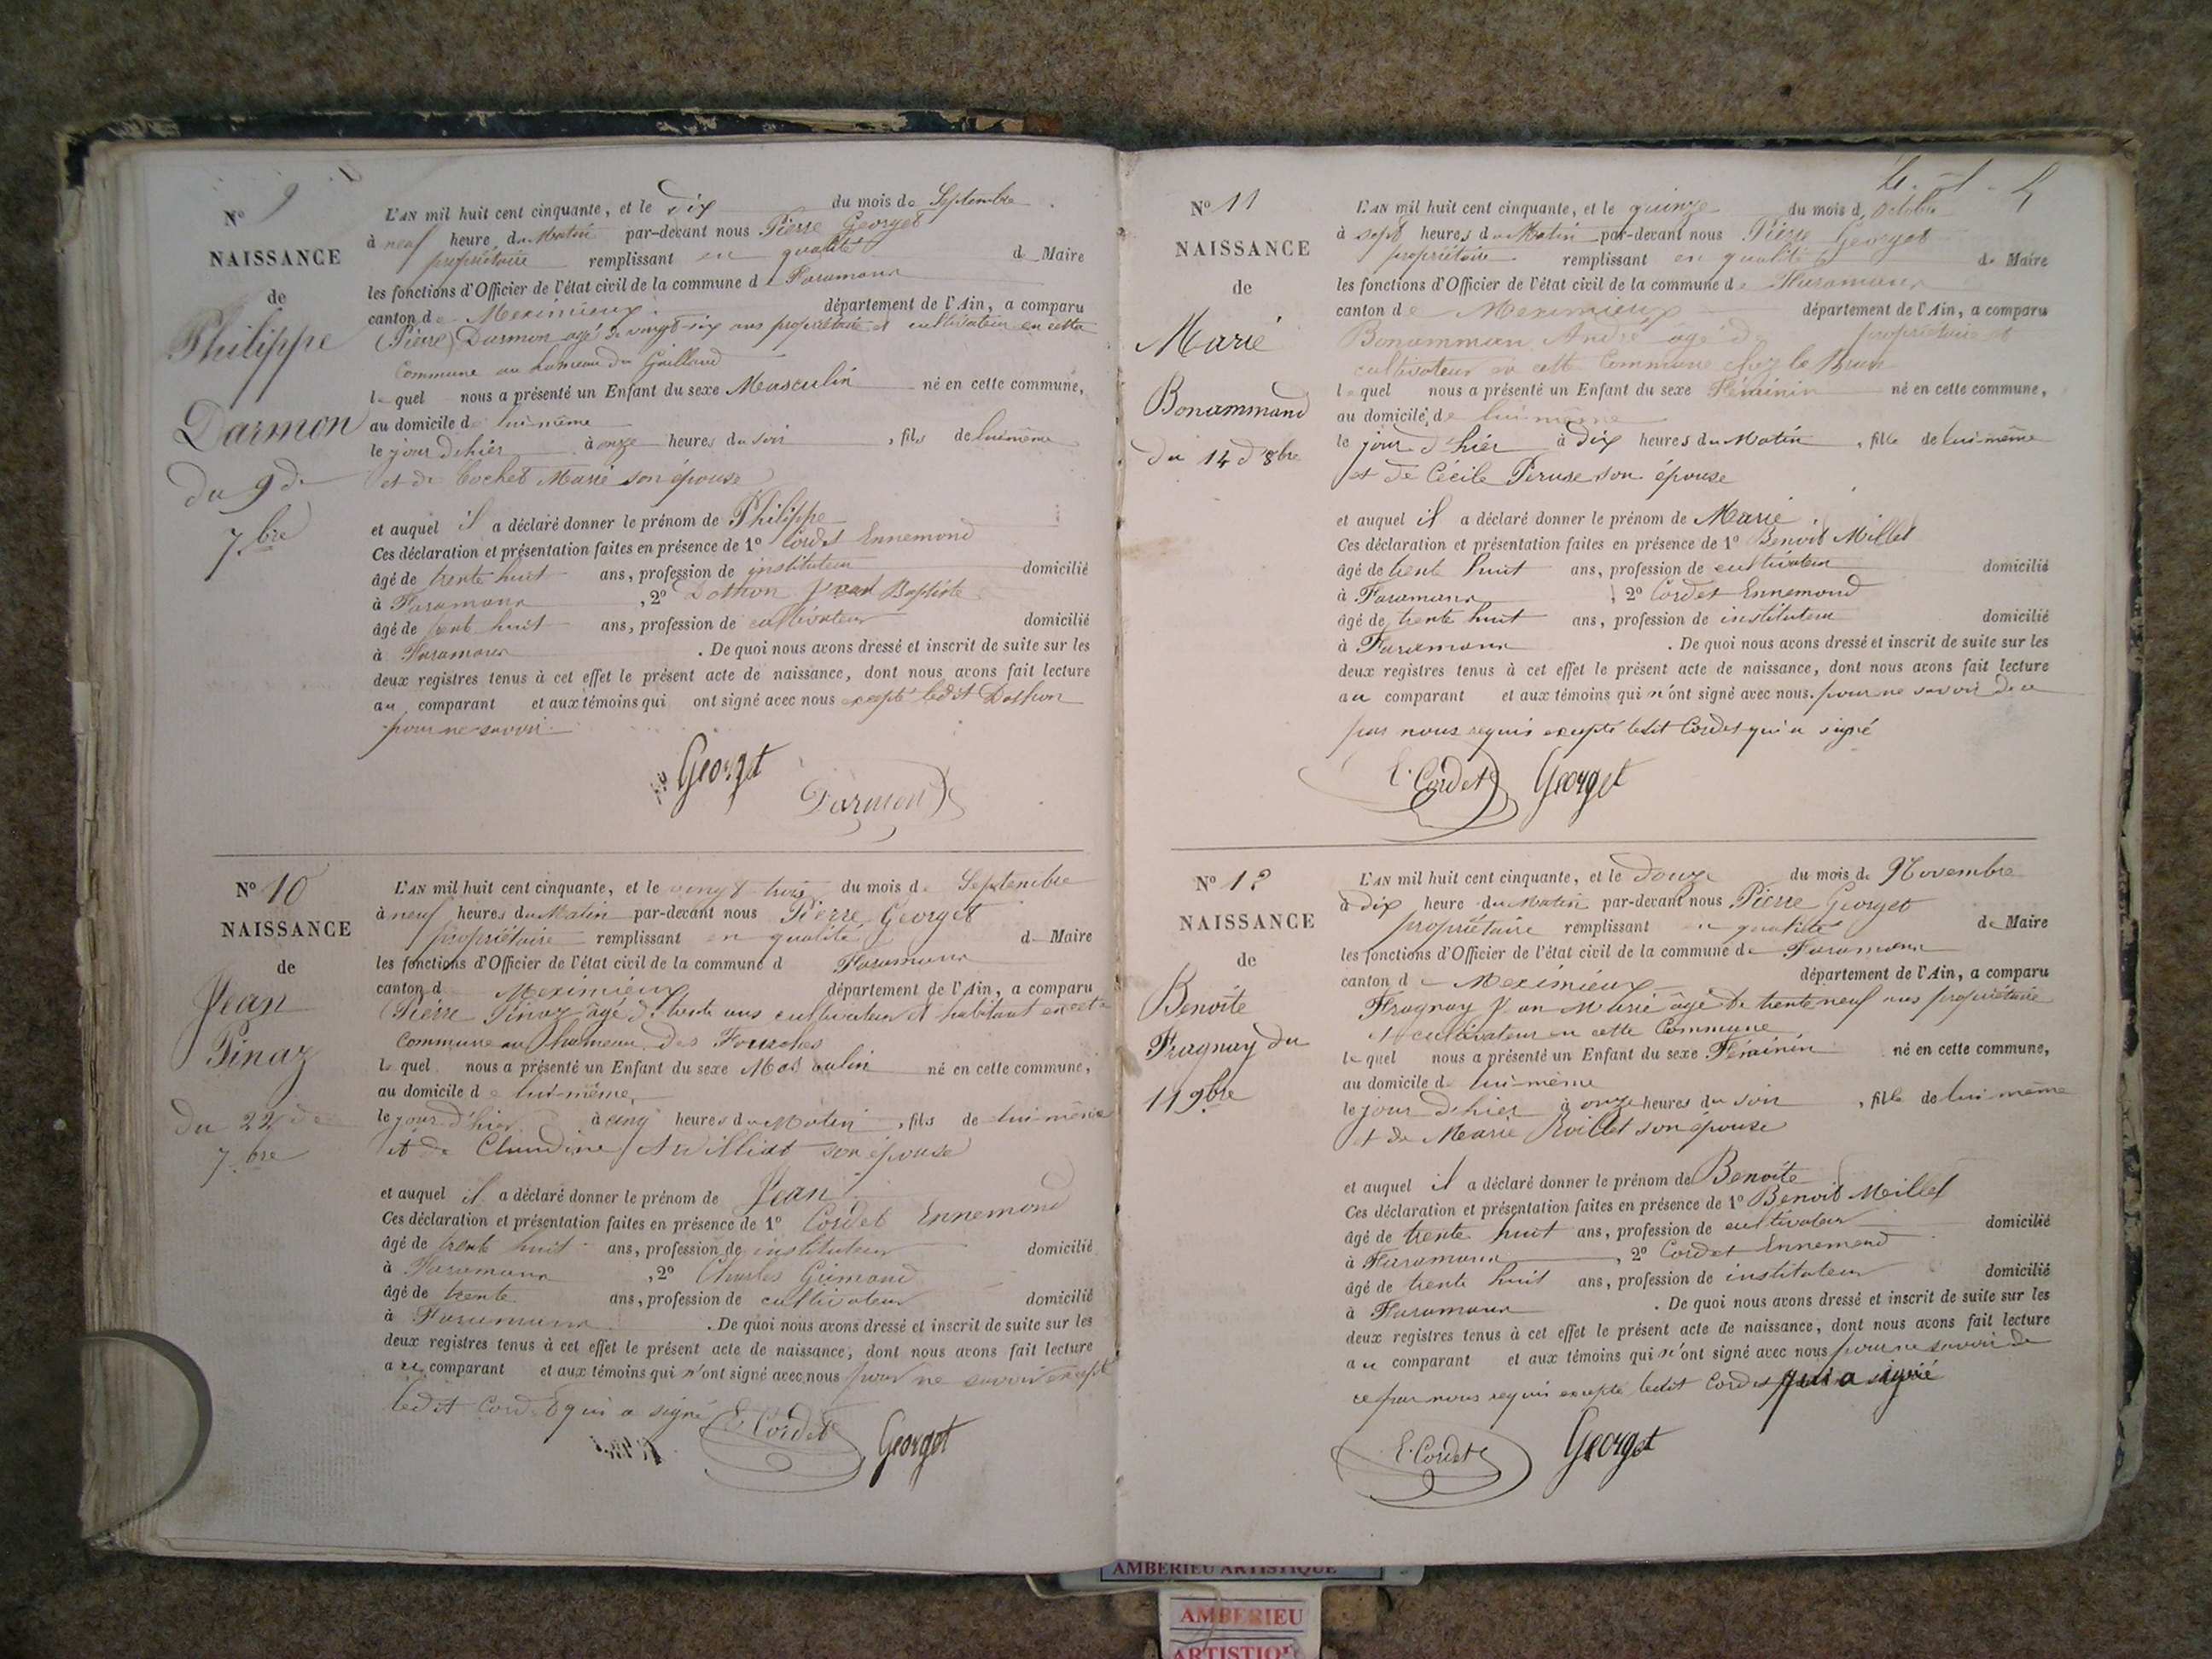 Nº 9
NAISSANCE
de
Philippe
Darmon
du 9 de
7bre
L'AN mil huit cent cinquante, et le dix du mois de Septembre
à neuf heure du Matin par-devant nous Pierre Georget
propriétaire remplissant en qualité de Maire
les fonctions d'Officier de l'état civil de la commune de Faramans
canton de Meximieux département de l'Ain, a comparu
Pierre Darmon agé de vingt-six ans propriétaire et cultivateur en cette
Commune au hameau du Gaillard
lequel nous a présenté un Enfant du sexe Masculin né en cette commune,
au domicile de lui-même
le jour d'hier à onze heures du soir, fils de lui même
et de Cochet Marie son épouse
et auquel il a déclaré donner le prénom de Philippe
Ces déclaration et présentation faites en présence de 1º Cordet Ennemond
âgé de trente huit ans, profession de instituteur domicilié
à Faramans, 2º Dothon Jean Baptiste
âgé de trente huit ans, profession de cultivateur domicilié
à Faramans. De quoi nous avons dressé et inscrit de suite sur les
deux registres tenus à cet effet le présent acte de naissance, dont nous avons fait lecture
au comparant et aux témoins qui ont signé avec nous excepté ledit Dothon
pour ne savoir
Georget
Darmon
Nº 10
NAISSANCE
de
Jean
Pinaz
du 22 de
7bre
L'AN mil huit cent cinquante, et le vingt trois du mois de Septembre
à neuf heures du Matin par-devant nous Pierre Georget
propriétaire remplissant en qualité de Maire
les fonctions d'Officier de l'état civil de la commune d Faramans
canton de Meximieux département de l'Ain, a comparu
Pierre Pinaz âgé de trente ans cultivateur et habitant en cette
Commune au hameau des Fourches
lequel nous a présenté un Enfant du sexe Masculin né en cette commune,
au domicile de lui-même,
le jour d'hier à cinq heures du Matin, fils de lui même
et de Claudine son épouse
et auquel il a déclaré donner le prénom de Jean
Ces déclaration et présentation faites en présence de 1º Cordet Ennemond
âgé de trente huit ans, profession de instituteur domicilié
à Faramans, 2º Charles Guimand
âgé de trente ans, profession de cultivateur domicilié
à Faramans. De quoi nous avons dressé et inscrit de suite sur les
deux registres tenus à cet effet le présent acte de naissance, dont nous avons fait lecture
au comparant et aux témoins qui n'ont signé avec nous pour ne savoir excepté
ledit Cordet qui a signé
E. Cordet
Georget
Nº 11
NAISSANCE
de
Marie
Bonammand
du 14 d'8bre
L'AN mil huit cent cinquante, et le quinze du mois d'Octobre
à sept heures du Matin par-devant nous Pierre Georget
propriétaire remplissant en qualité de Maire
les fonctions d'Officier de l'état civil de la commune de Faramans
canton de Meximieux département de l'Ain, a comparu
Bonamman André agé de propriétaire et
cultivateur en cette Commune chez le Brun
lequel nous a présenté un Enfant du sexe Féminin né en cette commune,
au domicile de lui-même
le jour d'hier à dix heures du Matin, fille de lui-même
et de Cécile Peruse son épouse
et auquel il a déclaré donner le prénom de Marie
Ces déclaration et présentation faites en présence de 1º Benoit Millet
âgé de trente huit ans, profession de cultivateur domicilié
à Faramans, 2º Cordet Ennemond
âgé de trente huit ans, profession de instituteur domicilié
à Faramans. De quoi nous avons dressé et inscrit de suite sur les
deux registres tenus à cet effet le présent acte de naissance, dont nous avons fait lecture
au comparant et aux témoins qui n'ont signé avec nous. pour ne savoir de ce
par nous requis excepté ledit Cordet qui a signé
E. Cordet
Georget
Nº 12
NAISSANCE
de
Benoite
Fragnay du
11 9bre
L'AN mil huit cent cinquante, et le douze du mois de Novembre
à dix heure du Matin par-devant nous Pierre Georget
propriétaire remplissant en qualité de Maire
les fonctions d'Officier de l'état civil de la commune de Faramans
canton de Meximieux département de l'Ain, a comparu
Fragnay Jean Marie âgé de trente neuf ans propriétaire
et cultivateur en cette Commune
lequel nous a présenté un Enfant du sexe Féminin né en cette commune,
au domicile de lui-même
le jour d'hier à onze heures du soir, fille de lui même
et de Marie Roillet son épouse
et auquel il a déclaré donner le prénom de Benoite
Ces déclaration et présentation faites en présence de 1º Benoit Meillet
âgé de trente huit ans, profession de cultivateur domicilié
à Faramans, 2º Cordet Ennemond
âgé de trente huit ans, profession de instituteur domicilié
à Faramans. De quoi nous avons dressé et inscrit de suite sur les
deux registres tenus à cet effet le présent acte de naissance, dont nous avons fait lecture
au comparant et aux témoins qui n'ont signé avec nous pour ne savoir de
ce par nous requis excepté ledit Cordet qui a signé
E. Cordet
Georget
AMBERIEU ARTISTIQUE
AMBERIEU
ARTISTIQUE